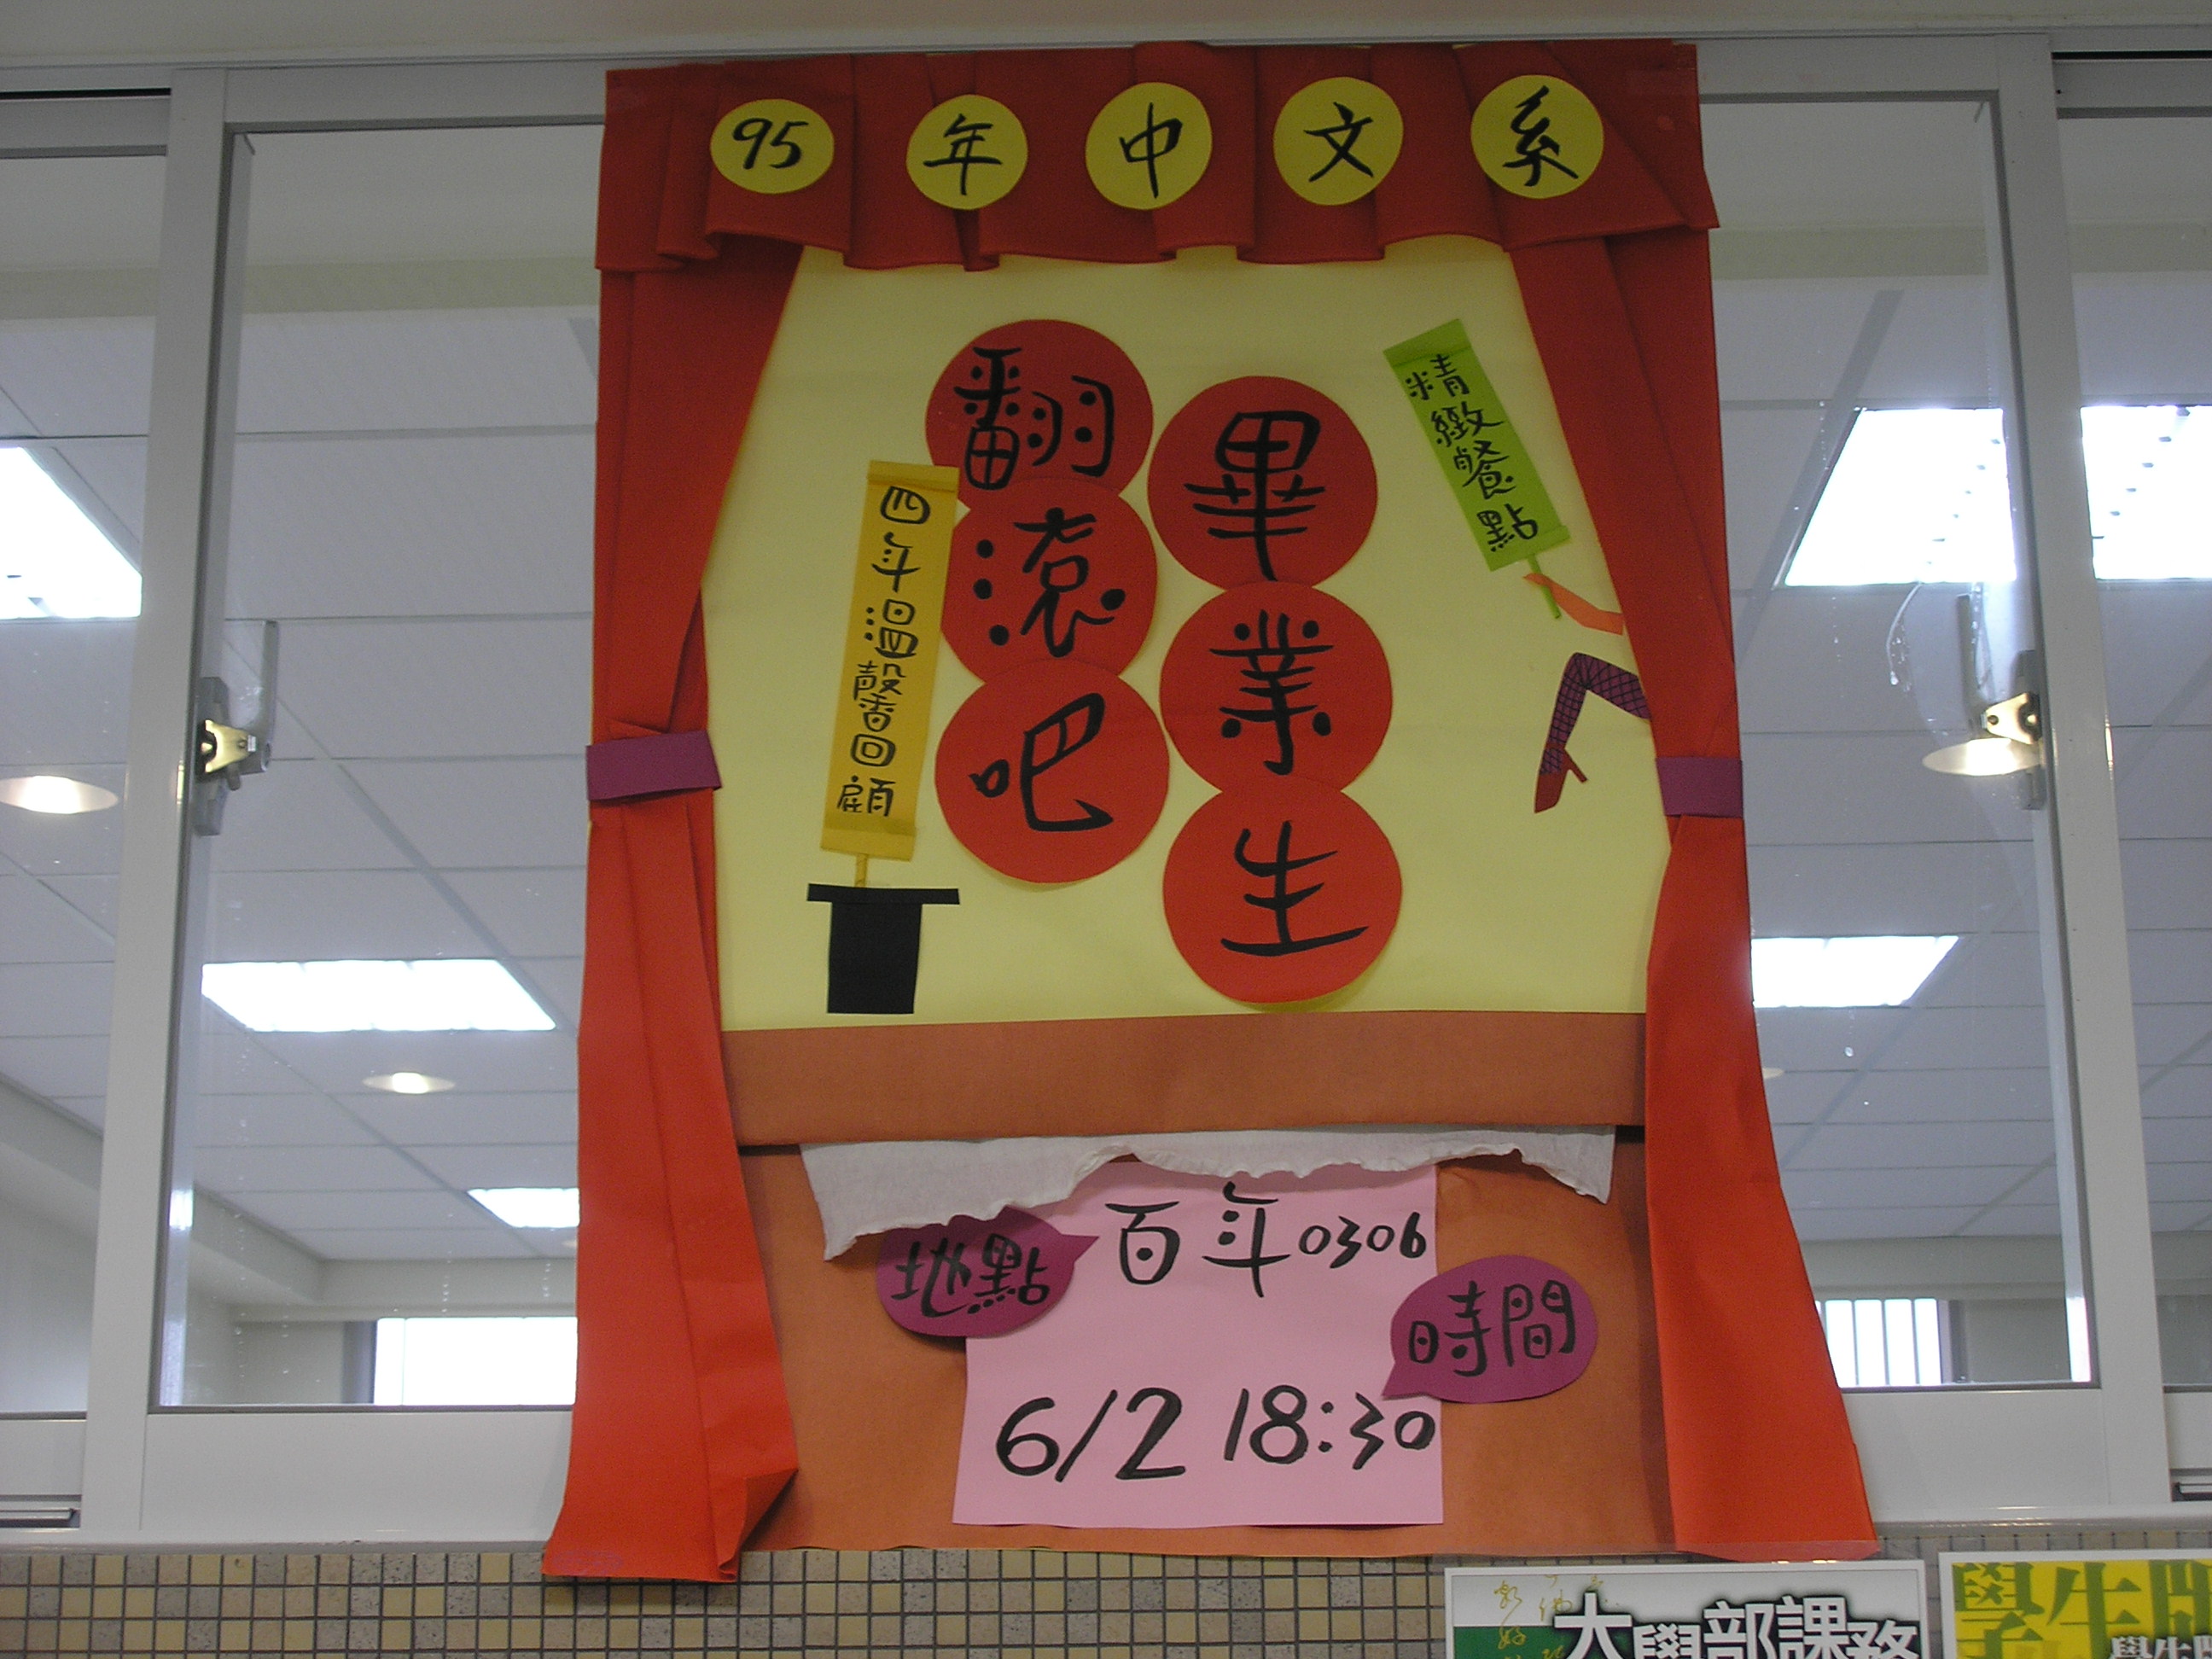 95年中文系
畢業生
翻滾吧
精緻餐點
四年溫馨回顧
地點
百年0306
時間
6/2 18:30
大學部課務
學生版